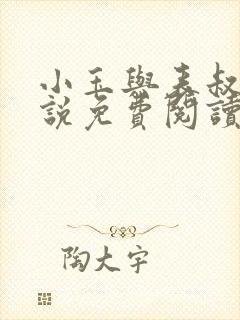 小玉與表叔
說免費閱讀
陶大宇